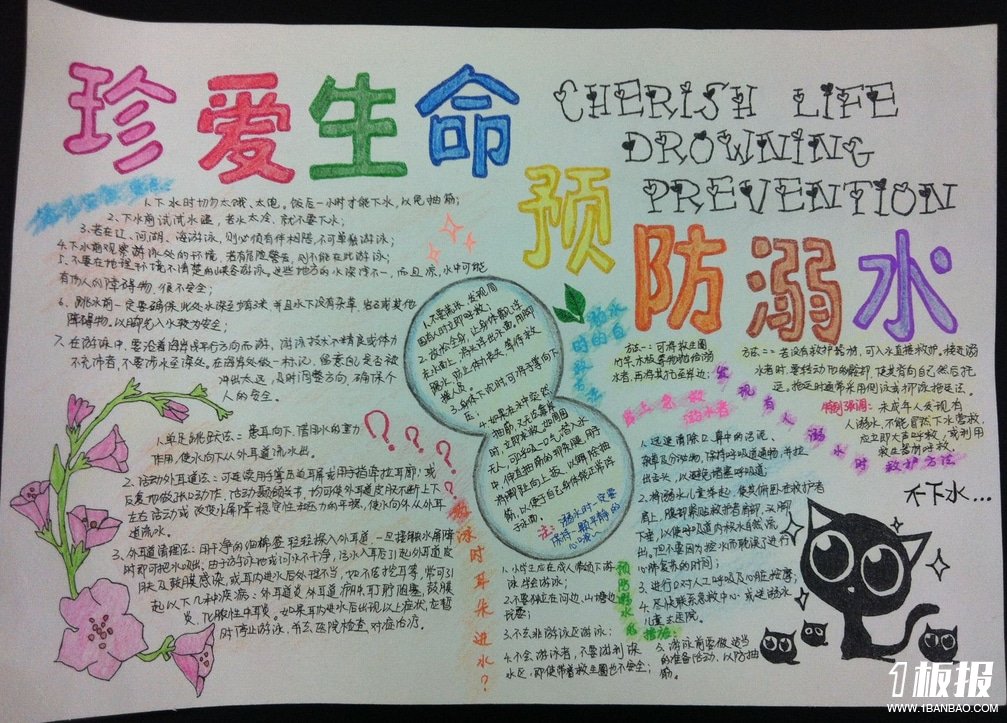 珍爱生命
CHERISH LIFE
DROWNING
PREVENTION
预防溺水
1.下水时切勿太饿、太饱。饭后一小时才能下水,以免抽筋;
2.下水前试试水温,若水太冷,就不要下水;
3.若在江、河、湖、海游泳,则必须有伴相陪,不可单独游泳;
4.下水前观察游泳处的环境,若有危险警告,则不能在此游泳;
5.不要在地理环境不清楚的峡谷游泳。这些地方的水深浅不一,而且凉,水中可能
有伤人的障碍物,很不安全;
6.跳水前一定要确保此处水深至少有3米,并且水下没有杂草、岩石或其他
障碍物。以脚先入水较为安全;
7.在海中游泳,要沿着海岸线平行方向而游,游泳技术不精良或体力
不充沛者,不要涉水至深处。在海岸处做一标记,留意自己是否被
冲出太远,及时调整方向,确保个
人的安全。
1.不要慌张,发现周
围有人时立即呼救;
2.放松全身,让身体飘浮
在水面上,将头部浮出水面,用脚
踢水,防止体力丧失,等待救
援人员。
3.身体下沉时,可将手掌向下
压;
4.如果在水中突然
抽筋,又无法靠岸
时,立即求救。如周围
无人,可深吸一口气潜入水
中,伸直抽筋的那条腿,用手
将脚趾向上扳,以解除抽
筋
注:溺水时一定要
保持一颗平静的
心哦~
溺水
时的自
救方法
方法一:可将救生圈、
竹竿、木板等物抛给溺
水者,再将其拖至岸边;
方法二:若没有救护器材,可入水直接救护。接近溺
水者时要转动他的髋部,使其背向自己然后拖
运。拖运时通常采用侧泳或仰泳拖运法。
特别强调:未成年人发现有
人溺水,不能冒然下水营救,
应立即大声呼救,或利用
救生器材呼救
发现有人溺水时救护方法
岸上急救溺水者
1.迅速清除口、鼻中的污泥、
杂草及分泌物,保持呼吸道通畅,并拉
出舌头,以避免堵塞呼吸道;
2.将溺水儿童举起,使其俯卧在救护者
肩上,腹部紧贴救护者肩部,头脚
下垂,以使呼吸道内积水自然流
出。但不要因为控水而耽误了进行
心肺复苏的时间;
3.进行口对人工呼吸及心脏按摩;
4.尽快联系急救中心或送溺水
儿童去医院。
不下水…
1.单足跳跃法:患耳向下,借用水的重力
作用,使水向下从外耳道流出。
2.活动外耳道法:可连续用手掌压迫耳屏或用手指牵拉耳郭;或
反复地做张口动作,活动颞颌关节,均可使外耳道皮肤不断上下
左右活动或改变水屏障稳定性和压力的平衡,使水向外从外耳
道流出。
3.外耳道清理法:用干净的细棉签轻轻探入外耳道,一旦接触水屏障
时即可把水吸出。由于游泳池或河水不干净,污水入耳后引起外耳道皮
肤及鼓膜感染,或耳内进水后处理不当,如不洁挖耳等,常可引
起以下几种疾病:外耳道炎、外耳道疖肿、耵聍阻塞、鼓膜
炎、化脓性中耳炎。如果耳内进水后出现以上症状,应暂
时停止游泳,并去医院检查、对症治疗。
????
游泳时耳朵进水?
预防溺水的措施:
1.小学生应在成人带领下游
泳学会游泳;
2.不要独立在河边、山塘边
玩耍;
3.不去非游泳区游泳;
4.不会游泳者,不要游到深
水区,即使带着救生圈也不安全;
5.游泳前要做适当
的准备活动,以防抽
筋。
1板报
WWW.1BANBAO.COM